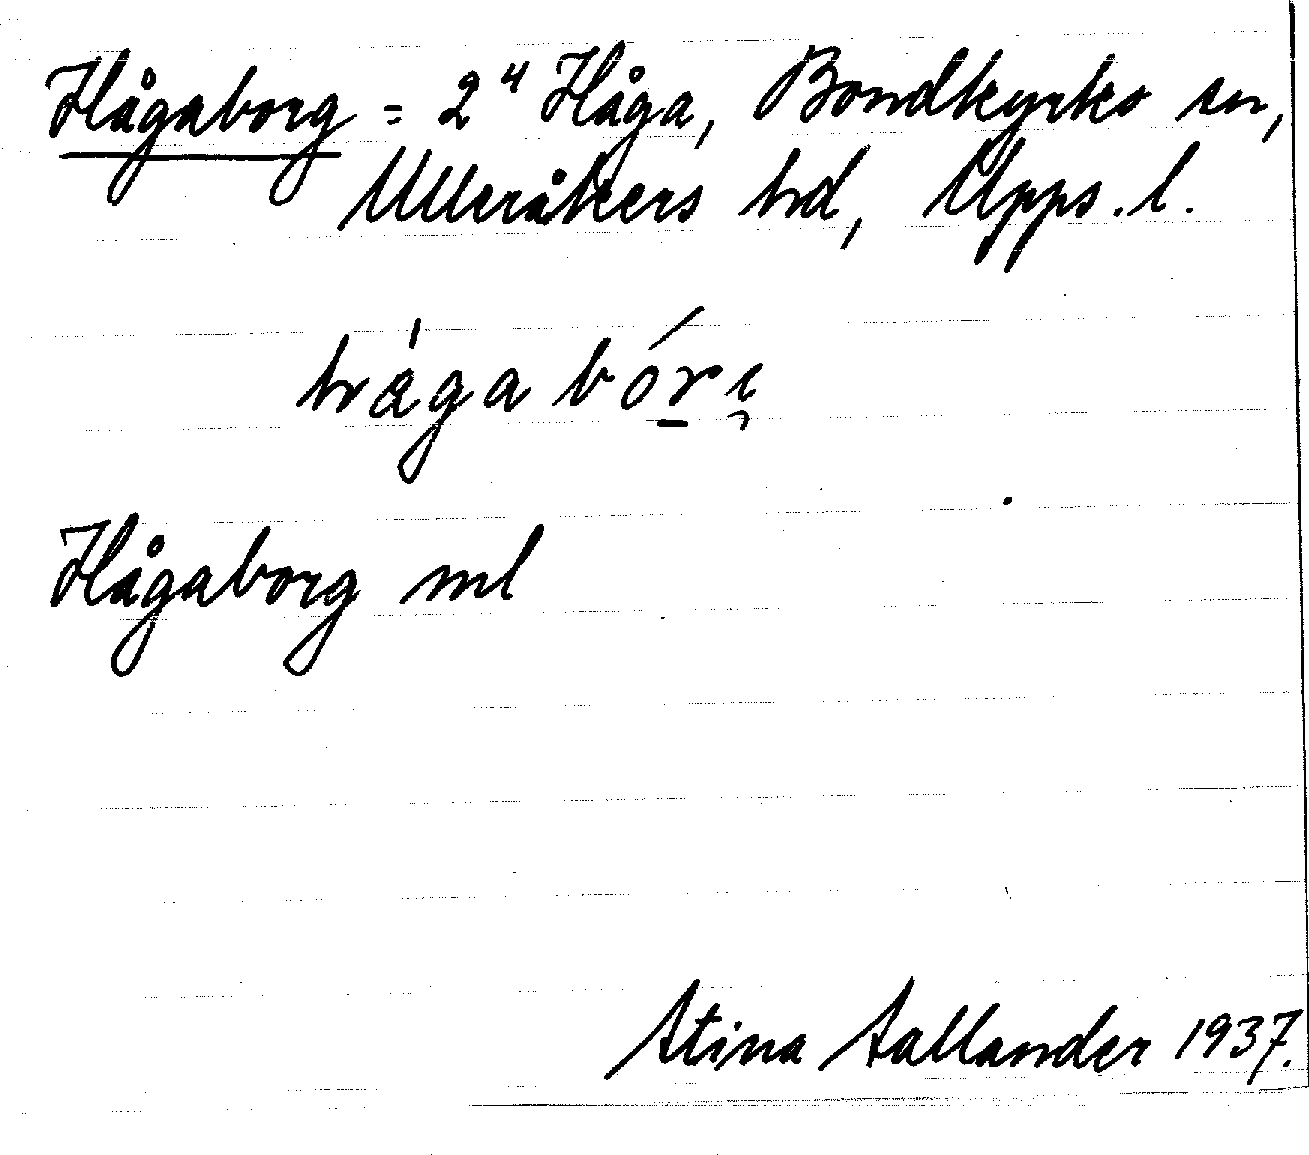 Hågaborg = 2⁴ Håga, Bondkyrko sn,
Ulleråkers hd, Upps. l.
hågabórı̨
Hågaborg ml
Stina Sallander 1937.